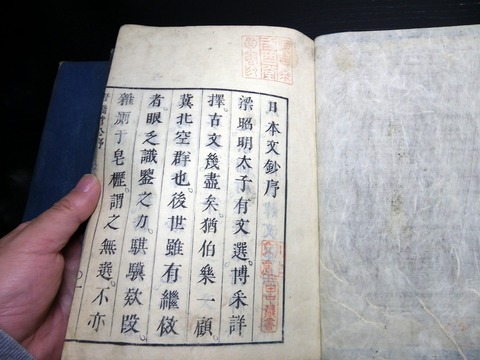 日本文鈔序
梁昭明太子有文選。博采詳
擇。古文幾盡矣。猶伯樂一顧。
冀北空群也。後世雖有繼倣
者。眼乏識鑒之力。騏驥欵段。
雜厠于皂櫪。謂之無選。不亦